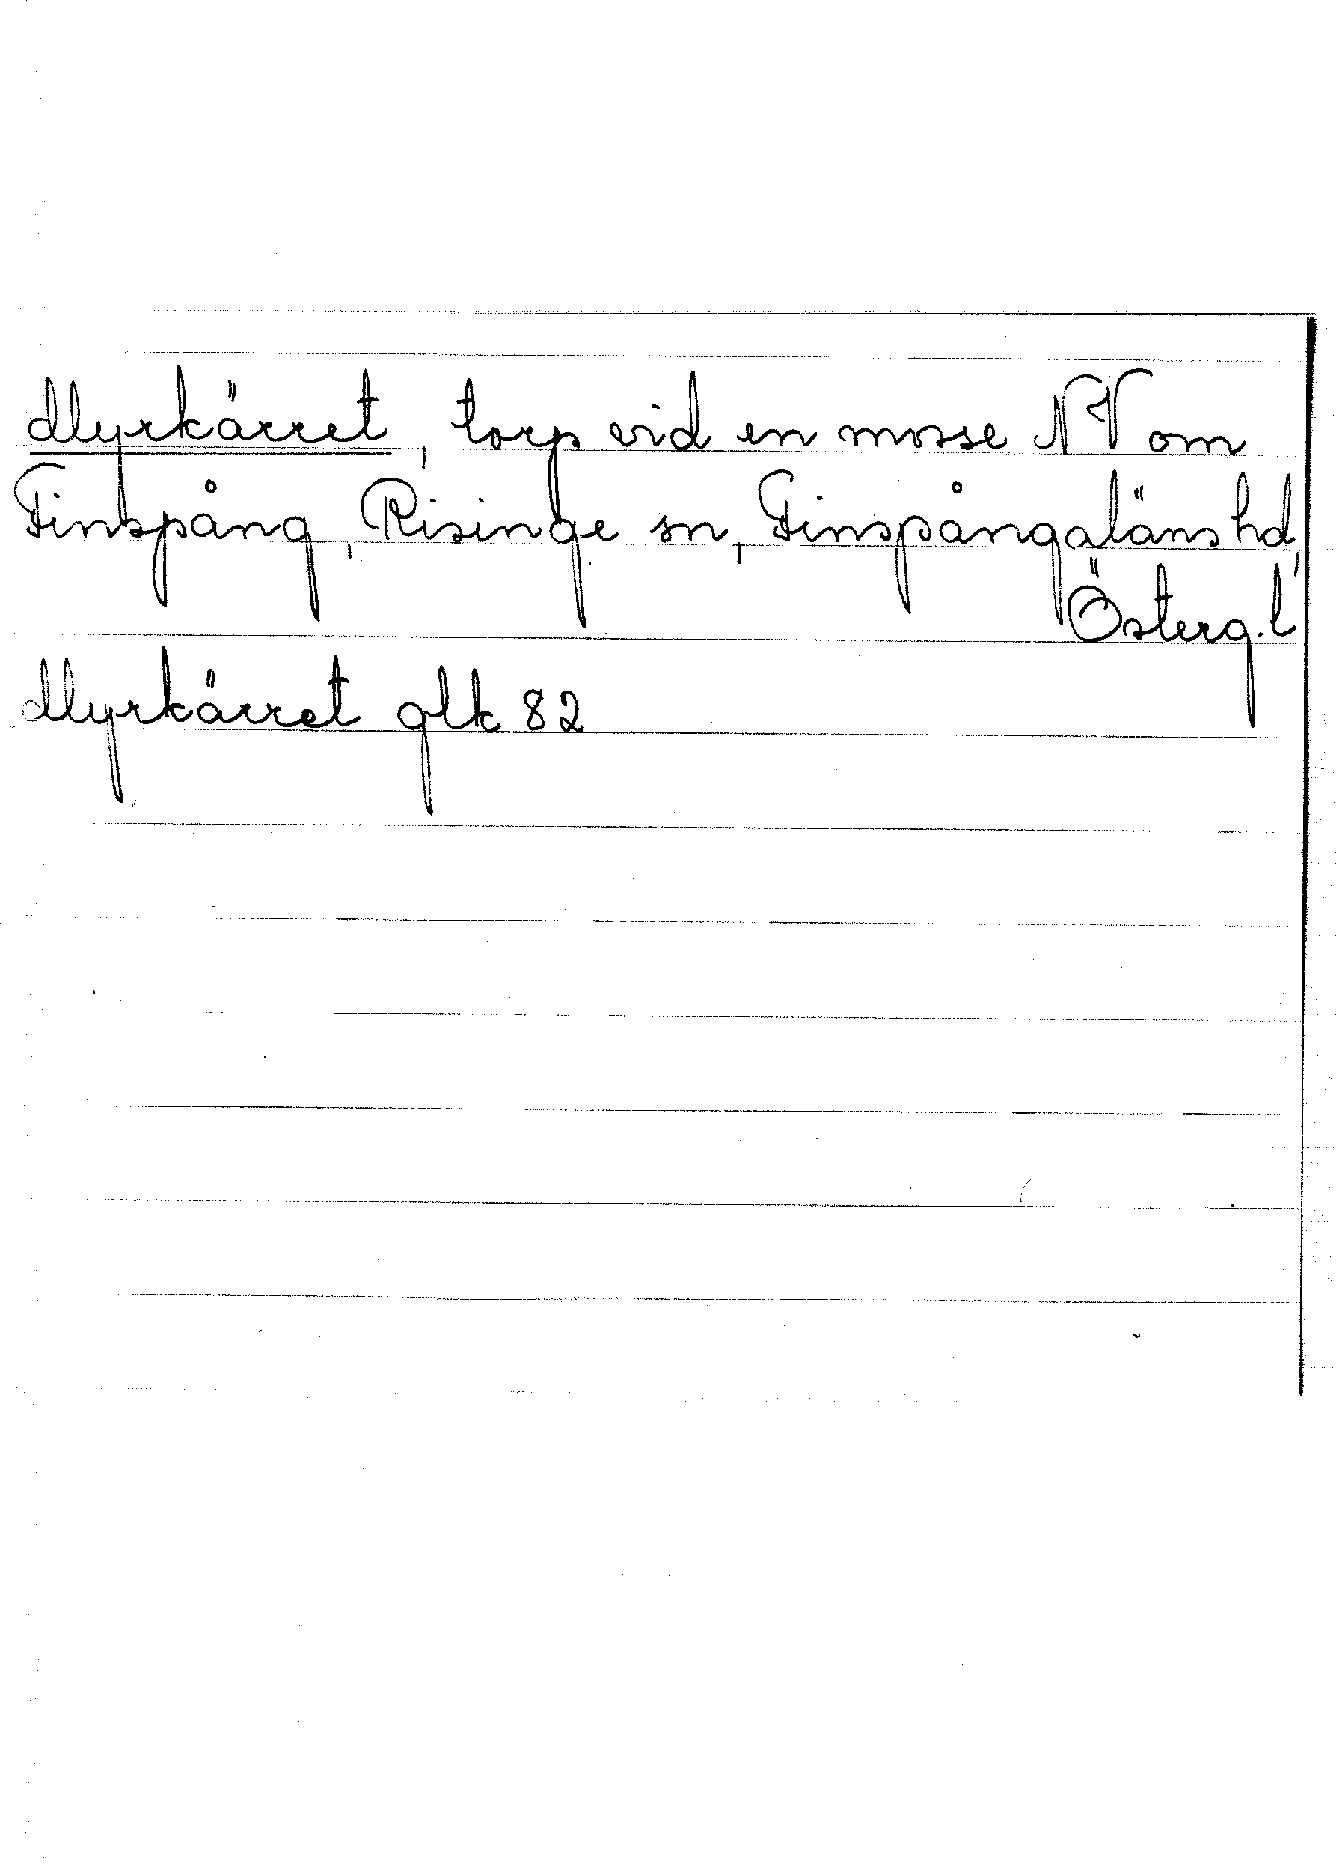 Myrkärret, torp vid en mosse NV om
Finspång, Risinge sn, Finspångaläns hd,
Österg. l
Myrkärret glk 82